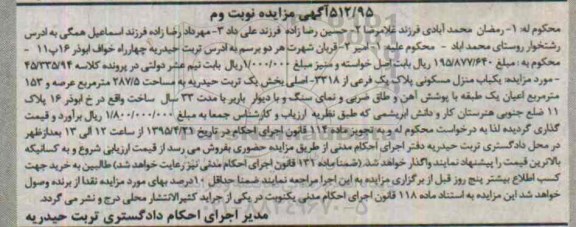 ۵۱۲/۹۵آگهی مزایده نوبت وم
محکوم له: ۱-رمضان محمد آبادی فرزند غلامرضا ۲-حسین رضا زاده فرزند علی داد ۳-مهرداد رضا زاده فرزند اسماعیل همگی به ادرس
رشتخوار روستای محمد اباد - محکوم علیه: ۱-امیر ۲-قربان شهرت هر دو برسم به ادرس تربت حیدریه چهارراه خواف ابوذر ۱۶پ۱۱ -
محکوم به: مبلغ ۱۹۵/۸۷۷/۶۴۰ ریال بابت اصل خواسته و مبلغ ۱/۰۰۰/۰۰۰ریال بابت نیم عشر دولتی در پرونده کلاسه ۴۵/۳۳۵/۹۴
- مورد مزایده: یکباب منزل مسکونی پلاک یک فرعی از ۳۳۱۸-اصلی بخش یک تربت حیدریه به مساحت ۲۸۷/۵ مترمربع عرصه و ۱۵۳
مترمربع اعیان یک طبقه با پوشش آهن و طاق ضربی و نمای سنگ و با دیوار باربر با مدت ۳۳ سال ساخت واقع در خ ابوذر ۱۶ پلاک
۱۱ ضلع جنوبی هنرستان کار و دانش ابریشمی که طبق نظریه ارزیاب و کارشناس جمعا به مبلغ ۱/۸۰۰/۰۰۰/۰۰۰ ریال برآورد و قیمت
گذاری گردیده لذا به درخواست محکوم له و به تجویز ماده ۱۱۴ قانون اجرای احکام در تاریخ ۱۳۹۵/۴/۲۱ از ساعت ۱۲ الی ۱۳ بعدازظهر
در محل دادگستری تربت حیدریه دفتر اجرای احکام مدنی از طریق مزایده حضوری بفروش می رسد از قیمت ارزیابی شروع و به کسانیکه
بالاترین قیمت را پیشنهاد نمایند واگذار خواهد شد (ضمنا ماده ۱۳۱ قانون اجرای احکام مدنی نیز رعایت خواهد شد) طالبین به خرید جهت
کسب اطلاع بیشتر پنج روز قبل از برگزاری مزایده به این اجرا مراجعه نمایند ضمنا حداقل ۱۰درصد بهای مورد مزایده نقدا از برنده وصول
خواهد شد این مزایده به استناد ماده ۱۱۸ قانون اجرای احکام مدنی یکنوبت در یکی از جراید کثیرالانتشار محلی درج و نشر می گردد.
مدیر اجرای احکام دادگستری تربت حیدریه